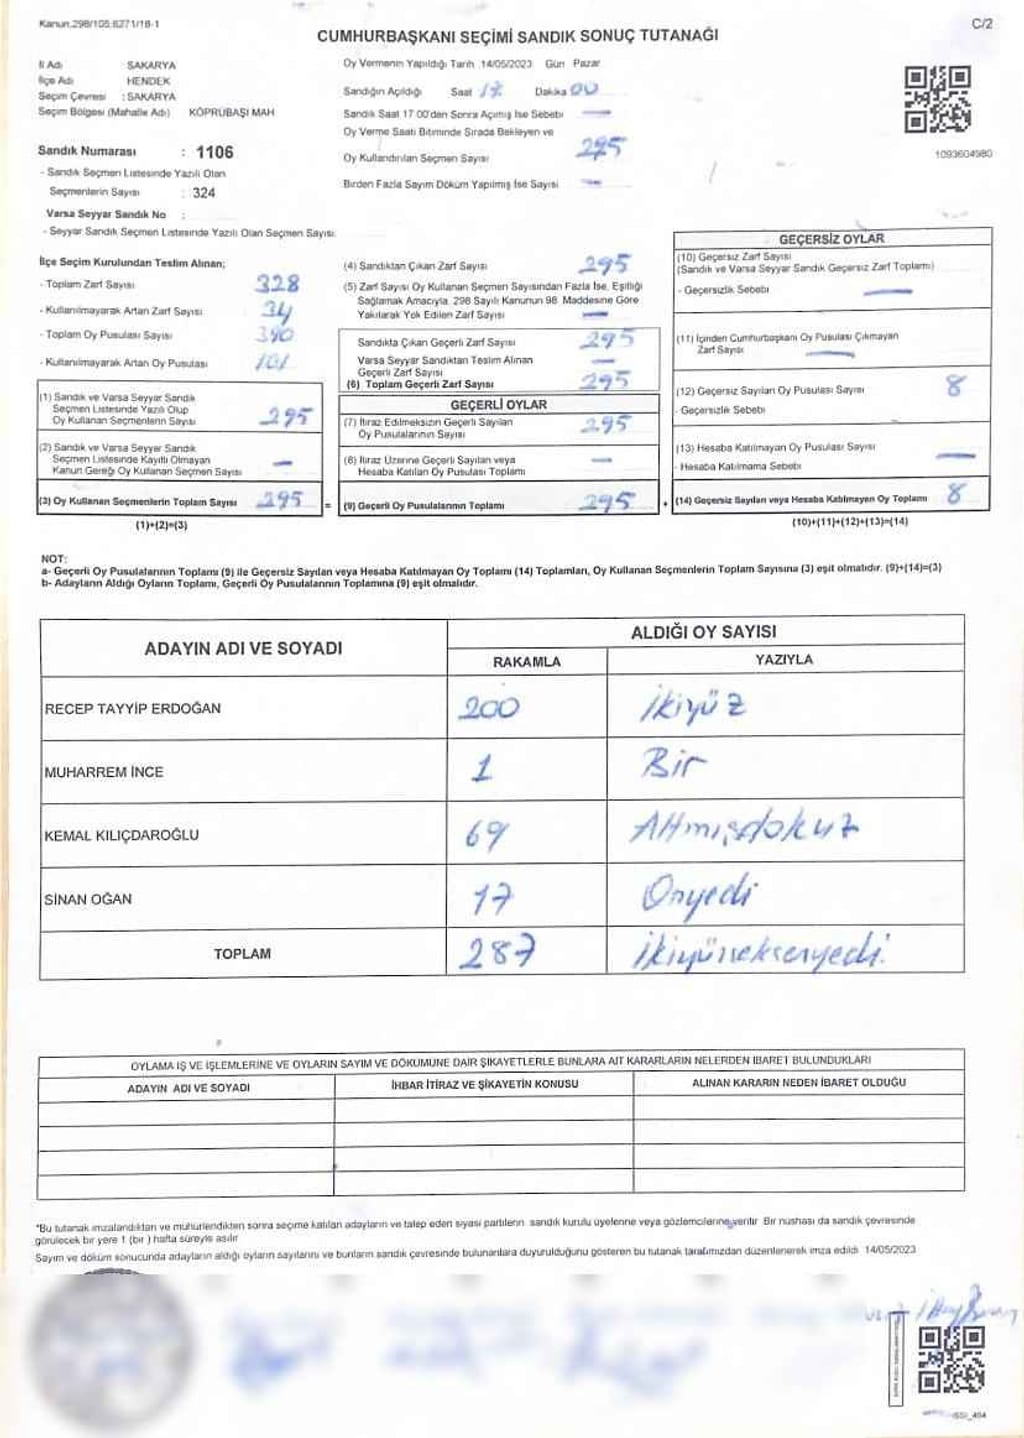 Kanun.298/105:6271/18-1
C/2
CUMHURBAŞKANI SEÇİMİ SANDIK SONUÇ TUTANAĞI
İl Adı SAKARYA
İlçe Adı HENDEK
Seçim Çevresi : SAKARYA
Seçim Bölgesi (Mahalle Adı) KÖPRÜBAŞI MAH
Sandık Numarası : 1106
- Sandık Seçmen Listesinde Yazılı Olan
Seçmenlerin Sayısı : 324
Varsa Seyyar Sandık No :
- Seyyar Sandık Seçmen Listesinde Yazılı Olan Seçmen Sayısı:
Oy Vermenin Yapıldığı Tarih 14/05/2023 Gün Pazar
Sandığın Açıldığı Saat 17 Dakika 00
Sandık Saat 17 00'den Sonra Açımış İse Sebebi —
Oy Verme Saati Bitiminde Sırada Bekleyen ve
Oy Kullandırılan Seçmen Sayısı 295
Birden Fazla Sayım Döküm Yapılmış İse Sayısı —
1093604980
İlçe Seçim Kurulundan Teslim Alınan;
- Toplam Zarf Sayısı 328
- Kullanılmayarak Artan Zarf Sayısı 34
- Toplam Oy Pusulası Sayısı 390
- Kullanılmayarak Artan Oy Pusulası 101
(1) Sandık ve Varsa Seyyar Sandık
Seçmen Listesinde Yazılı Olup
Oy Kullanan Seçmenlerin Sayısı 295
(2) Sandık ve Varsa Seyyar Sandık
Seçmen Listesinde Kayıtlı Olmayan
Kanun Gereği Oy Kullanan Seçmen Sayısı —
(3) Oy Kullanan Seçmenlerin Toplam Sayısı 295 =
(1)+(2)=(3)
(4) Sandıktan Çıkan Zarf Sayısı 295
(5) Zarf Sayısı Oy Kullanan Seçmen Sayısından Fazla İse, Eşitliği
Sağlamak Amacıyla, 298 Sayılı Kanunun 98. Maddesine Göre
Yakılarak Yok Edilen Zarf Sayısı —
Sandıkta Çıkan Geçerli Zarf Sayısı 295
Varsa Seyyar Sandıktan Teslim Alınan
Geçerli Zarf Sayısı —
(6) Toplam Geçerli Zarf Sayısı 295
GEÇERLİ OYLAR
(7) İtiraz Edilmeksizin Geçerli Sayılan
Oy Pusulalarının Sayısı 295
(8) İtiraz Üzerine Geçerli Sayılan veya
Hesaba Katılan Oy Pusulası Toplamı —
(9) Geçerli Oy Pusulalarının Toplamı 295 +
GEÇERSİZ OYLAR
(10) Geçersiz Zarf Sayısı
(Sandık ve Varsa Seyyar Sandık Geçersiz Zarf Toplamı)
- Geçersizlik Sebebi —
(11) İçinden Cumhurbaşkanı Oy Pusulası Çıkmayan
Zarf Sayısı —
(12) Geçersiz Sayılan Oy Pusulası Sayısı 8
- Geçersizlik Sebebi
(13) Hesaba Katılmayan Oy Pusulası Sayısı —
- Hesaba Katılmama Sebebi
(14) Geçersiz Sayılan veya Hesaba Katılmayan Oy Toplamı 8
(10)+(11)+(12)+(13)=(14)
NOT:
a- Geçerli Oy Pusulalarının Toplamı (9) ile Geçersiz Sayılan veya Hesaba Katılmayan Oy Toplamı (14) Toplamları, Oy Kullanan Seçmenlerin Toplam Sayısına (3) eşit olmalıdır. (9)+(14)=(3)
b- Adayların Aldığı Oyların Toplamı, Geçerli Oy Pusulalarının Toplamına (9) eşit olmalıdır.
ADAYIN ADI VE SOYADI ALDIĞI OY SAYISI
RAKAMLA YAZIYLA
RECEP TAYYİP ERDOĞAN 200 İkiyüz
MUHARREM İNCE 1 Bir
KEMAL KILIÇDAROĞLU 69 Altmışdokuz
SİNAN OĞAN 17 Onyedi
TOPLAM 287 İkiyüzseksenyedi.
OYLAMA İŞ VE İŞLEMLERİNE VE OYLARIN SAYIM VE DÖKÜMÜNE DAİR ŞİKAYETLERLE BUNLARA AİT KARARLARIN NELERDEN İBARET BULUNDUKLARI
ADAYIN ADI VE SOYADI İHBAR İTİRAZ VE ŞİKAYETİN KONUSU ALINAN KARARIN NEDEN İBARET OLDUĞU
*Bu tutanak imzalandıktan ve mühürlendikten sonra seçime katılan adayların ve talep eden siyasi partilerin sandık kurulu üyelerine veya gözlemcilerine verilir Bir nüshası da sandık çevresinde
görülecek bir yere 1 (bir ) hafta süreyle asılır
Sayım ve döküm sonucunda adayların aldığı oyların sayılarını ve bunların sandık çevresinde bulunanlara duyurulduğunu gösteren bu tutanak tarafımızdan düzenlenerek imza edildi 14/05/2023